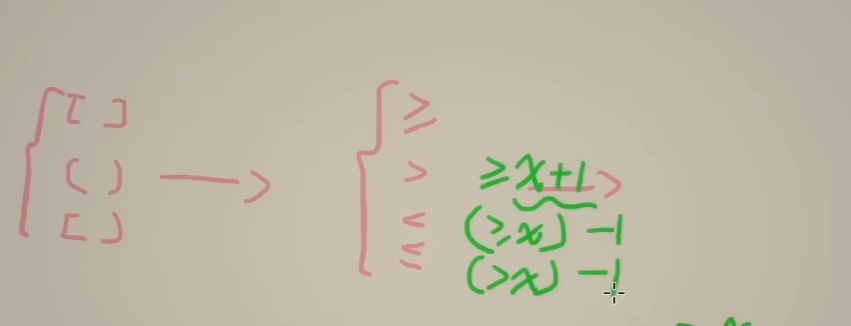 { [ ]
( )
[ )
→
{ ≥
>
<
≤
≥ x+1
(≥x) -1
(>x) -1